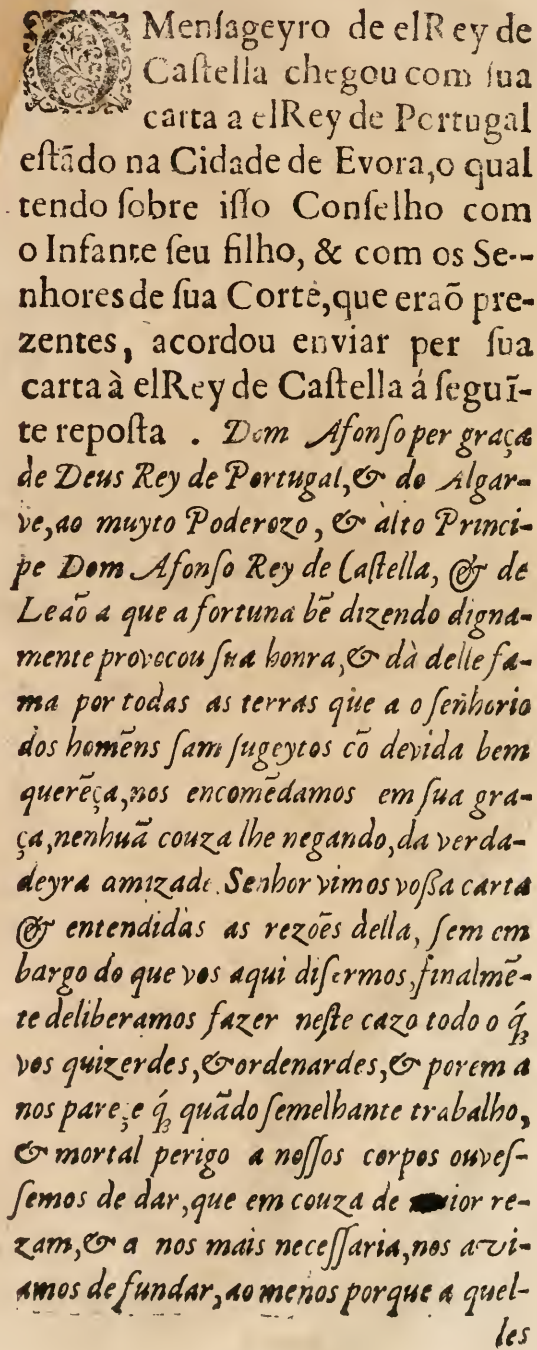 O Menſageyro de elRey de
Caſtella chegou com ſua
carta a elRey de Portugal
eſtãdo na Cidade de Evora, o qual
tendo ſobre iſſo Conſelho com
o Infante ſeu filho, & com os Se--
nhores de ſua Corte, que eraõ pre-
zentes, acordou enviar per ſua
carta à elRey de Caſtella á ſeguī-
te repoſta . Dom Afonſo per graça
de Deus Rey de Portugal, & do Algar-
ve, ao muyto Poderozo, & alto Princi-
pe Dom Afonſo Rey de Caſtella, & de
Leaõ a que a fortuna bẽ dizendo digna-
mente provocou ſua honra, & dà delle fa-
ma por todas as terras que a o ſeñhorio
dos homẽns ſam ſugeytos cõ devida bem
querẽça, nos encomẽdamos em ſua gra-
ça, nenhuã couza lhe negando, da verda-
deyra amizade. Senhor vimos voſſa carta
& entendidas as rezões della, ſem em
bargo do que vos aqui diſermos, finalmẽ-
te deliberamos fazer neſte cazo todo o q́
vos quizerdes, & ordenardes, & porem a
nos pareçe q́ quãdo ſemelhante trabalho,
& mortal perigo a noſſos corpos ouveſ-
ſemos de dar, que em couza de maior re-
zam, & a nos mais neceſſaria, nos avi-
amos de fundar, ao menos porque a quel-
les